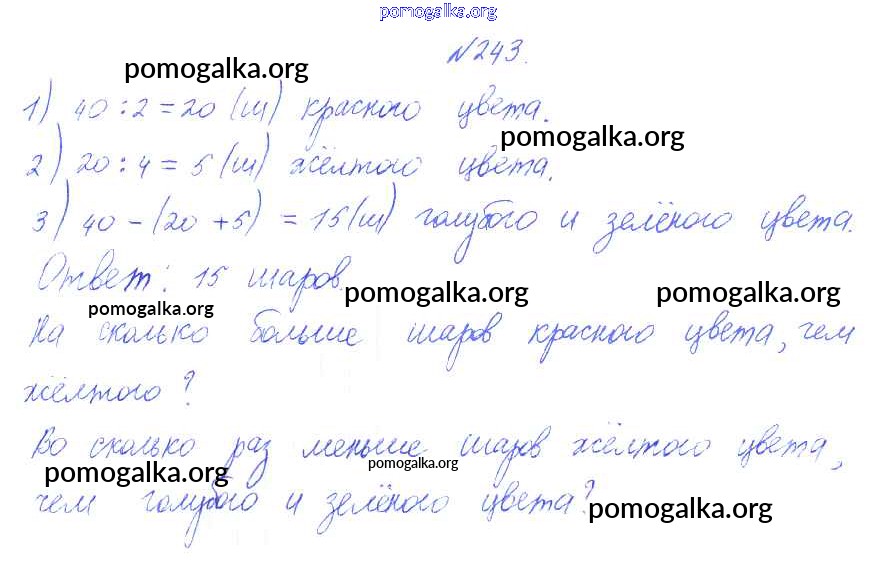 pomogalka.org
№243.
pomogalka.org
1) 40 : 2 = 20 (ш) красного цвета.
pomogalka.org
2) 20 : 4 = 5 (ш) жёлтого цвета.
3) 40 - (20 + 5) = 15 (ш) голубого и зелёного цвета.
Ответ: 15 шаров.
pomogalka.org pomogalka.org pomogalka.org
На сколько больше шаров красного цвета, чем
жёлтого?
Во сколько раз меньше шаров жёлтого цвета,
pomogalka.org pomogalka.org
чем голубого и зелёного цвета?
pomogalka.org